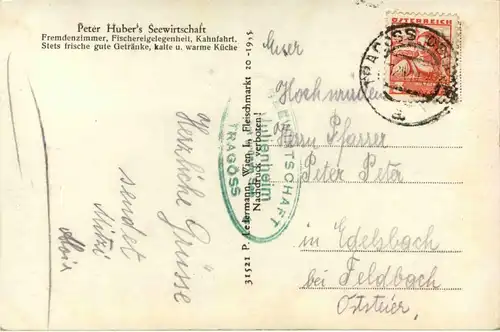 Peter Huber's Seewirtschaft
Fremdenzimmer, Fischereigelegenheit, Kahnfahrt.
Stets frische gute Getränke, kalte u. warme Küche
Herzliche Grüsse
sendet
Mitzi
31521 P. Ledermann, Wien I., Fleischmarkt 20 - 1935
Nachdruck verboten!
SEEWIRTSCHAFT
Julienheim
TRAGÖSS
ÖSTERREICH
TRAGÖSS
Hochwürden
Herrn Pfarrer
Peter Peter
in Edelsbach
bei Feldbach
Oststeier,